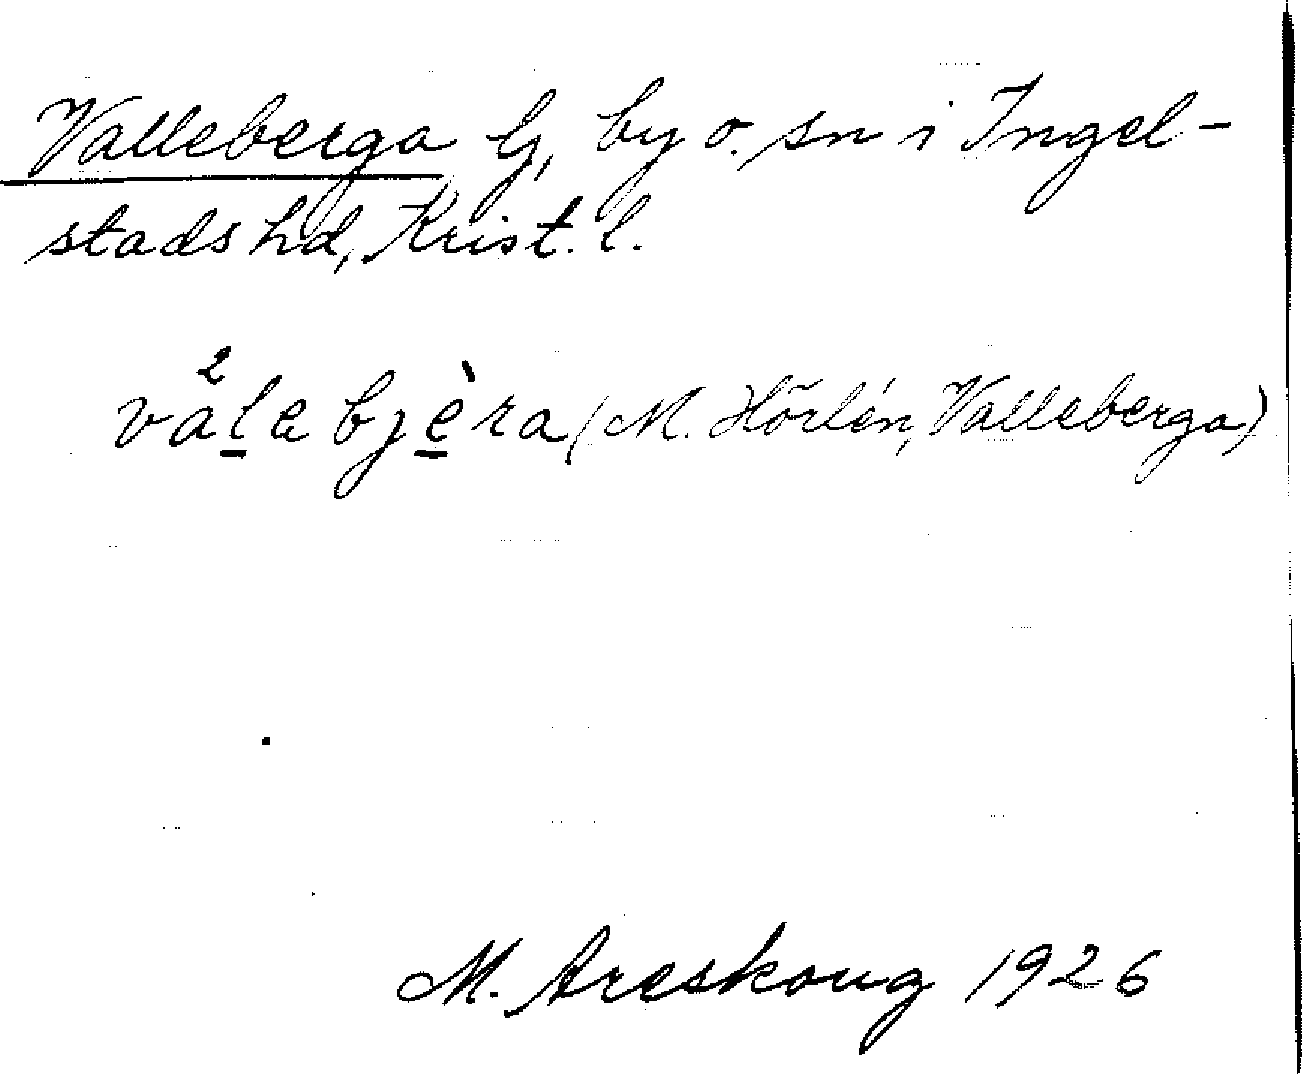 Valleberga lj, by o. sn i Ingel-
stads hd, Krist. l.
vålebjèra (M. Hörlén, Valleberga)
M. Areskoug 1926